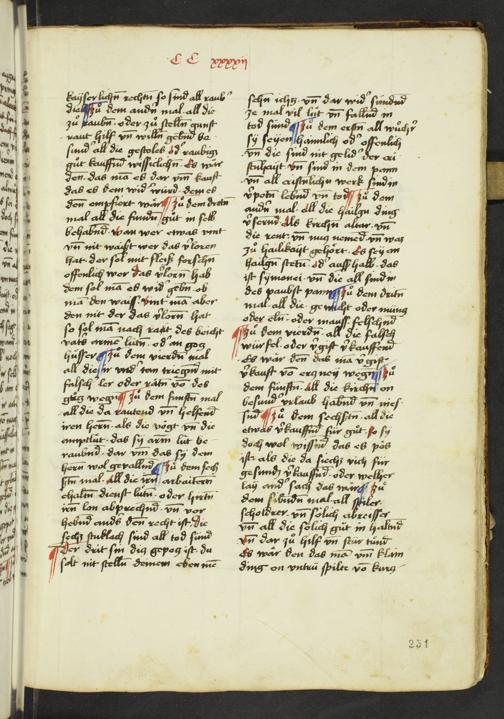 CC xxxxij
kayserlichn rechtn so sind all raub
dieb Zu dem andn mal all die
zu raubn oder zu stelln gunst
raut hilf un willn gebnd be
sind all die gestoles od raubigs
gut kauffnd wissiclichn Es wär
den das ma es dar um kauft
das es dem wid wurd dem es
den empfiert wär Zu dem drittn
mal all die fundn gut in selb
behabnd wan wer etwas vint
un nit waist wer das vlorn
hat der sol mit fleiß forschn
offenlich wer das vlorn hab
dem sol ma es wid gebn ob
ma den waiß vint ma aber
den nit der das vlorn hat
so sol ma nach raut des beicht
vats arme lutn od an gotz
hüsser Zu dem vierdn mal
all die ir wid tun triegn mit
falsch ler oder rätn vo des
gutz wegn Zu dem funftn mal
all die da rautend un helfend
iren hern als die vögt un die
amptlut das sy arm lut be
raubind dar um das sy dem
hern wol gevallind Zu dem sech
stn mal all die irn arbaitern
ehaltn dienst lutn oder hirtn
irn lon abprechnd un vor
hebnd anders den recht ist die
sechs stucklach sind all tod sünd
Der drit sin dig gepog ist du
solt nit stelln deinem ebn me
sehn ichtz un dar wid sundnd
Je mal vil lut un fallnd in
tod sünd Zu dem erstn all wuchr
sy seyen haimlich od offenlich
un die sind nit gelid der cri
stnhait un sind in dem pann
un all cristnlichu werk sind in
vpotn lebnd un tod Zu dem
andn mal all die hailgu ding
vsernd Als kirchn altar un
die rent un nutz nemend un was
zu hailikait gehört Es sey an
hailgn stetn od aussrhalb das
ist symonei un die all sind in
des paubst pann Zu dem drittn
mal all die gewicht oder müntz
oder eln oder mauss felschnd
Zu dem vierdn all die falsch
würfel oder vgift vkauffend
Es wär den das ma vgift
vkauft vo ertzney wegn Zu
dem funftn all die kirchn on
besundr urlaub habnd un nies
sind Zu dem sechstn all die
etwas vkauffnd für gut so sy
doch wol wissnd das es pös
ist als die da siechs vich für
gesunds vkauffnd oder welher
lay ando sach das wär Zu
dem sibndn mal all spiler
scholdrer un solich abreisser
un all die solich gut in haltnd
un dar zu hilf un stur tünd
Es wär den das ma um klain
ding on untru spilte vo kurtz
251